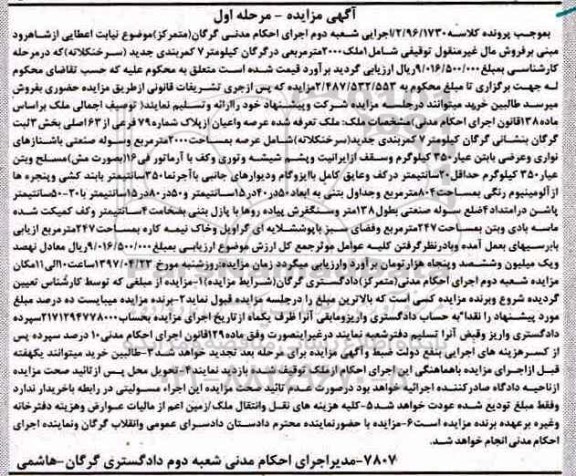 آگهی مزایده - مرحله اول
بموجب پرونده کلاسه ۲/۹۶/۱۷۳۰/اجرایی شعبه دوم اجرای احکام مدنی گرگان(متمرکز)موضوع نیابت اعطایی ازشاهرود
مبنی برفروش مال غیرمنقول توقیفی شامل(ملک۲۰۰۰مترمربعی درگرگان کیلومتر۷ کمربندی جدید (سرخنکلاته)که درمرحله
کارشناسی بمبلغ۹/۰۱۶/۵۰۰/۰۰۰ریال ارزیابی گردید برآورد قیمت شده است متعلق به محکوم علیه که حسب تقاضای محکوم
له جهت برگزاری تا مبلغ محکوم به ۲/۴۸۷/۵۳۲/۵۵۳مزایده که پس ازجری تشریفات قانونی ازطریق مزایده حضوری بفروش
میرسد طالبین خرید میتوانند درجلسه مزایده شرکت وپیشنهاد خود راارائه وتسلیم نمایند( توصیف اجمالی ملک براساس
ماده۱۳۸قانون اجرای احکام مدنی)مشخصات ملک: ملک تعرفه شده عرصه واعیان ازپلاک شماره۷۹ فرعی از۶۳اصلی بخش۳ثبت
گرگان بنشانی گرگان کیلومتر۷ کمربندی جدید(سرخنکلاته)شامل عرصه بمساحت۲۰۰۰مترمربع وسوله صنعتی باشنازهای
نواری وعرضی بابتن عیار۳۵۰ کیلوگرم وسقف ازایرانیت وپشم شیشه وتوری وکف با آرماتور فی۱۶(بصورت مش)مسلح وبتن
عیار۳۵۰ کیلوگرم حداقل۲۰سانتیمتر درکف وعایق کامل باایزوگام ودیوارهای جانبی باآجرنما۳۵۰سانتیمتر بابند کشی وپنجره ها
از آلومینیوم رنگی بمساحت۸۰۴مترمربع وجداول بتنی به ابعاد۵۰در۴۰در۱۵سانتیمتر و۵۰در۸۰در۱۵سانتیمتر با۳۰-۵۰سانتیمتر
پاشن درامتداد۴ضلع سوله صنعتی بطول۱۳۸متر وسنگفرش پیاده روها با پازل بتنی بضخامت۴سانتیمتر وکف کمیکت شده
ماسه بادی وبتن بمساحت۲۴۷مترمربع وفضای سبز باپوششلایه ای گراویل وخاک نیمه کاره بمساحت۲۴۷مترمربع ازیابی
بابرسیهای بعمل آمده وبادرنظرگرفتن کلیه عوامل موثرجمع کل ارزش موضوع ارزیابی بمبلغ۹/۰۱۶/۵۰۰/۰۰۰ریال معادل نهصد
ویک میلیون وششصد وپنجاه هزارتومان برآورد وارزیابی میگردد زمان مزایده:روزشنبه مورخ ۱۳۹۷/۰۴/۲۳ساعت۱۰الی۱۱مکان
مزایده شعبه دوم اجرای احکام مدنی(متمرکز)دادگستری گرگان(شرایط مزایده)۱-مزایده از مبلغی که توسط کارشناس تعیین
گردیده شروع وبرنده مزایده کسی است که بالاترین مبلغ را درجلسه مزایده قبول نماید۲-برنده مزایده میبایست ده درصد مبلغ
مورد پیشنهاد را نقدا"به حساب دادگستری واریزومابقی آنرا ظرف یکماه از تاریخ اجرای مزایده بحساب۲۱۷۱۲۹۴۷۷۸۰۰۰سپرده
دادگستری واریز وقبض آنرا تسلیم دفترشعبه نمایند درغیراینصورت وفق ماده۱۲۹قانون اجرای احکام مدنی۱۰درصد سپرده پس
از کسرهزینه های اجرایی بنفع دولت ضبط وآگهی مزایده برای مرحله بعد تجدید خواهد شد۳-طالبین خرید میتوانند یکهفته
قبل ازاجرای مزایده باهماهنگی این اجرای احکام ازملک توقیف شده بازدید نمایند۴-تحویل محل پس از تائید صحت مزایده
ازناحیه دادگاه صادرکننده اجرائیه خواهد بود درصورت عدم تائید صحت مزایده این اجراء مسولیتی در رابطه باخریدار ندارد
وفقط مبلغ تودیع شده عودت خواهد شد۵-کلیه هزینه های نقل وانتقال ملک/زمین اعم از مالیات عوارض وهزینه دفترخانه
وغیره برعهده برنده مزایده است۶-مزایده با حضورنماینده محترم دادستان دادسرای عمومی وانقلاب گرگان ونماینده اجرای
احکام مدنی انجام خواهد شد.
۷۸۰۷-مدیراجرای احکام مدنی شعبه دوم دادگستری گرگان-هاشمی